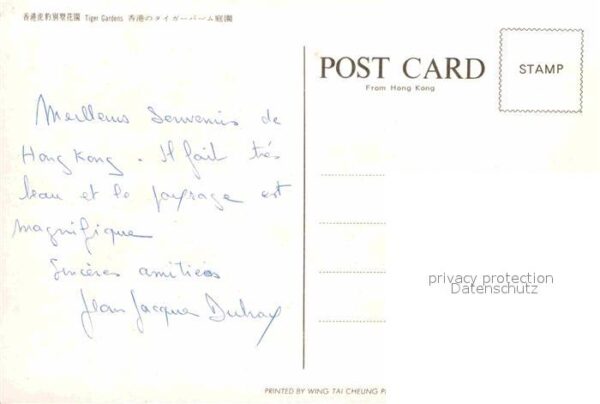 香港虎豹別墅花園 Tiger Gardens 香港のタイガーバーム庭園
Meilleurs Souvenirs de
Hong Kong. Il fait très
beau et le paysage est
magnifique
Sincères amitiés
Jean Jacques
POST CARD
From Hong Kong
STAMP
privacy protection
Datenschutz
PRINTED BY WING TAI CHEUNG P